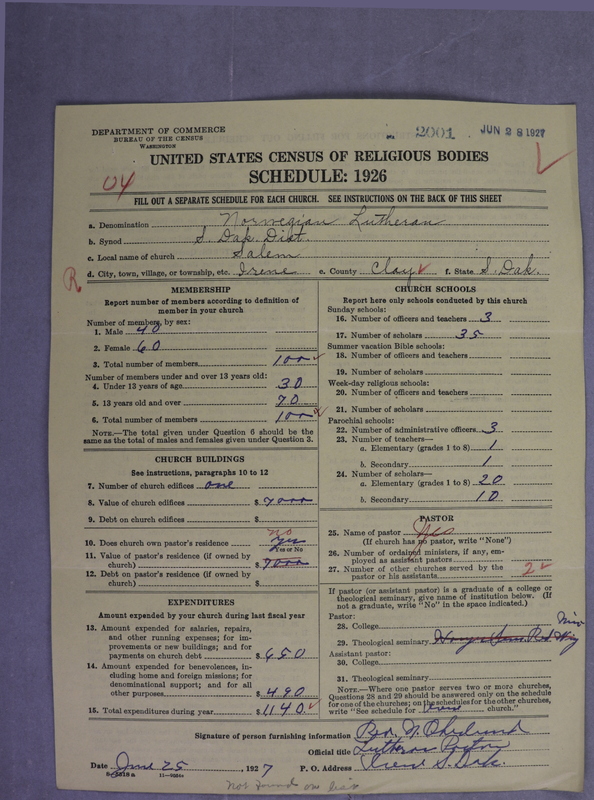 DEPARTMENT OF COMMERCE
BUREAU OF THE CENSUS
WASHINGTON
2001 JUN 28 1927
UNITED STATES CENSUS OF RELIGIOUS BODIES
SCHEDULE: 1926
04
FILL OUT A SEPARATE SCHEDULE FOR EACH CHURCH. SEE INSTRUCTIONS ON THE BACK OF THIS SHEET
a. Denomination Norwegian Lutheran
b. Synod S. Dak. Dist.
c. Local name of church Salem
R d. City, town, village, or township, etc. Irene e. County Clay f. State S. Dak.
MEMBERSHIP
Report number of members according to definition of
member in your church
Number of members, by sex:
1. Male 40
2. Female 60
3. Total number of members 100
Number of members under and over 13 years old:
4. Under 13 years of age 30
5. 13 years old and over 70
6. Total number of members 100
NOTE.—The total given under Question 6 should be the
same as the total of males and females given under Question 3.
CHURCH BUILDINGS
See instructions, paragraphs 10 to 12
7. Number of church edifices one
8. Value of church edifices $ 7000
9. Debt on church edifices $
no
10. Does church own pastor's residence? Yes
Yes or No
11. Value of pastor's residence (if owned by
church) $ 7000
12. Debt on pastor's residence (if owned by
church) $
EXPENDITURES
Amount expended by your church during last fiscal year
13. Amount expended for salaries, repairs,
and other running expenses; for im-
provements or new buildings; and for
payments on church debt $ 650
14. Amount expended for benevolences, in-
cluding home and foreign missions; for
denominational support; and for all
other purposes $ 490
15. Total expenditures during year $ 1140
CHURCH SCHOOLS
Report here only schools conducted by this church
Sunday schools:
16. Number of officers and teachers 3
17. Number of scholars 35
Summer vacation Bible schools:
18. Number of officers and teachers
19. Number of scholars
Week-day religious schools:
20. Number of officers and teachers
21. Number of scholars
Parochial schools:
22. Number of administrative officers 3
23. Number of teachers—
a. Elementary (grades 1 to 8) 1
b. Secondary 1
24. Number of scholars—
a. Elementary (grades 1 to 8) 20
b. Secondary 10
PASTOR
25. Name of pastor
(If church has no pastor, write "None")
26. Number of ordained ministers, if any, em-
ployed as assistant pastors
27. Number of other churches served by the
pastor or his assistants 2
If pastor (or assistant pastor) is a graduate of a college or
theological seminary, give name of institution below. (If
not a graduate, write "No" in the space indicated.)
Pastor:
28. College
29. Theological seminary Red Wing
Assistant pastor:
30. College
31. Theological seminary
NOTE.—Where one pastor serves two or more churches,
Questions 28 and 29 should be answered only on the schedule
for one of the churches; on the schedules for the other churches,
write "See schedule for church."
Signature of person furnishing information
Official title Lutheran Pastor
Date June 25, 1927 P. O. Address Irene S. Dak.
11—9304
Not found on